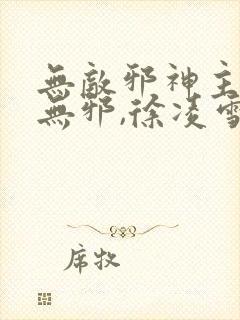 無敵邪神主
無邪,徐凌雪
席牧